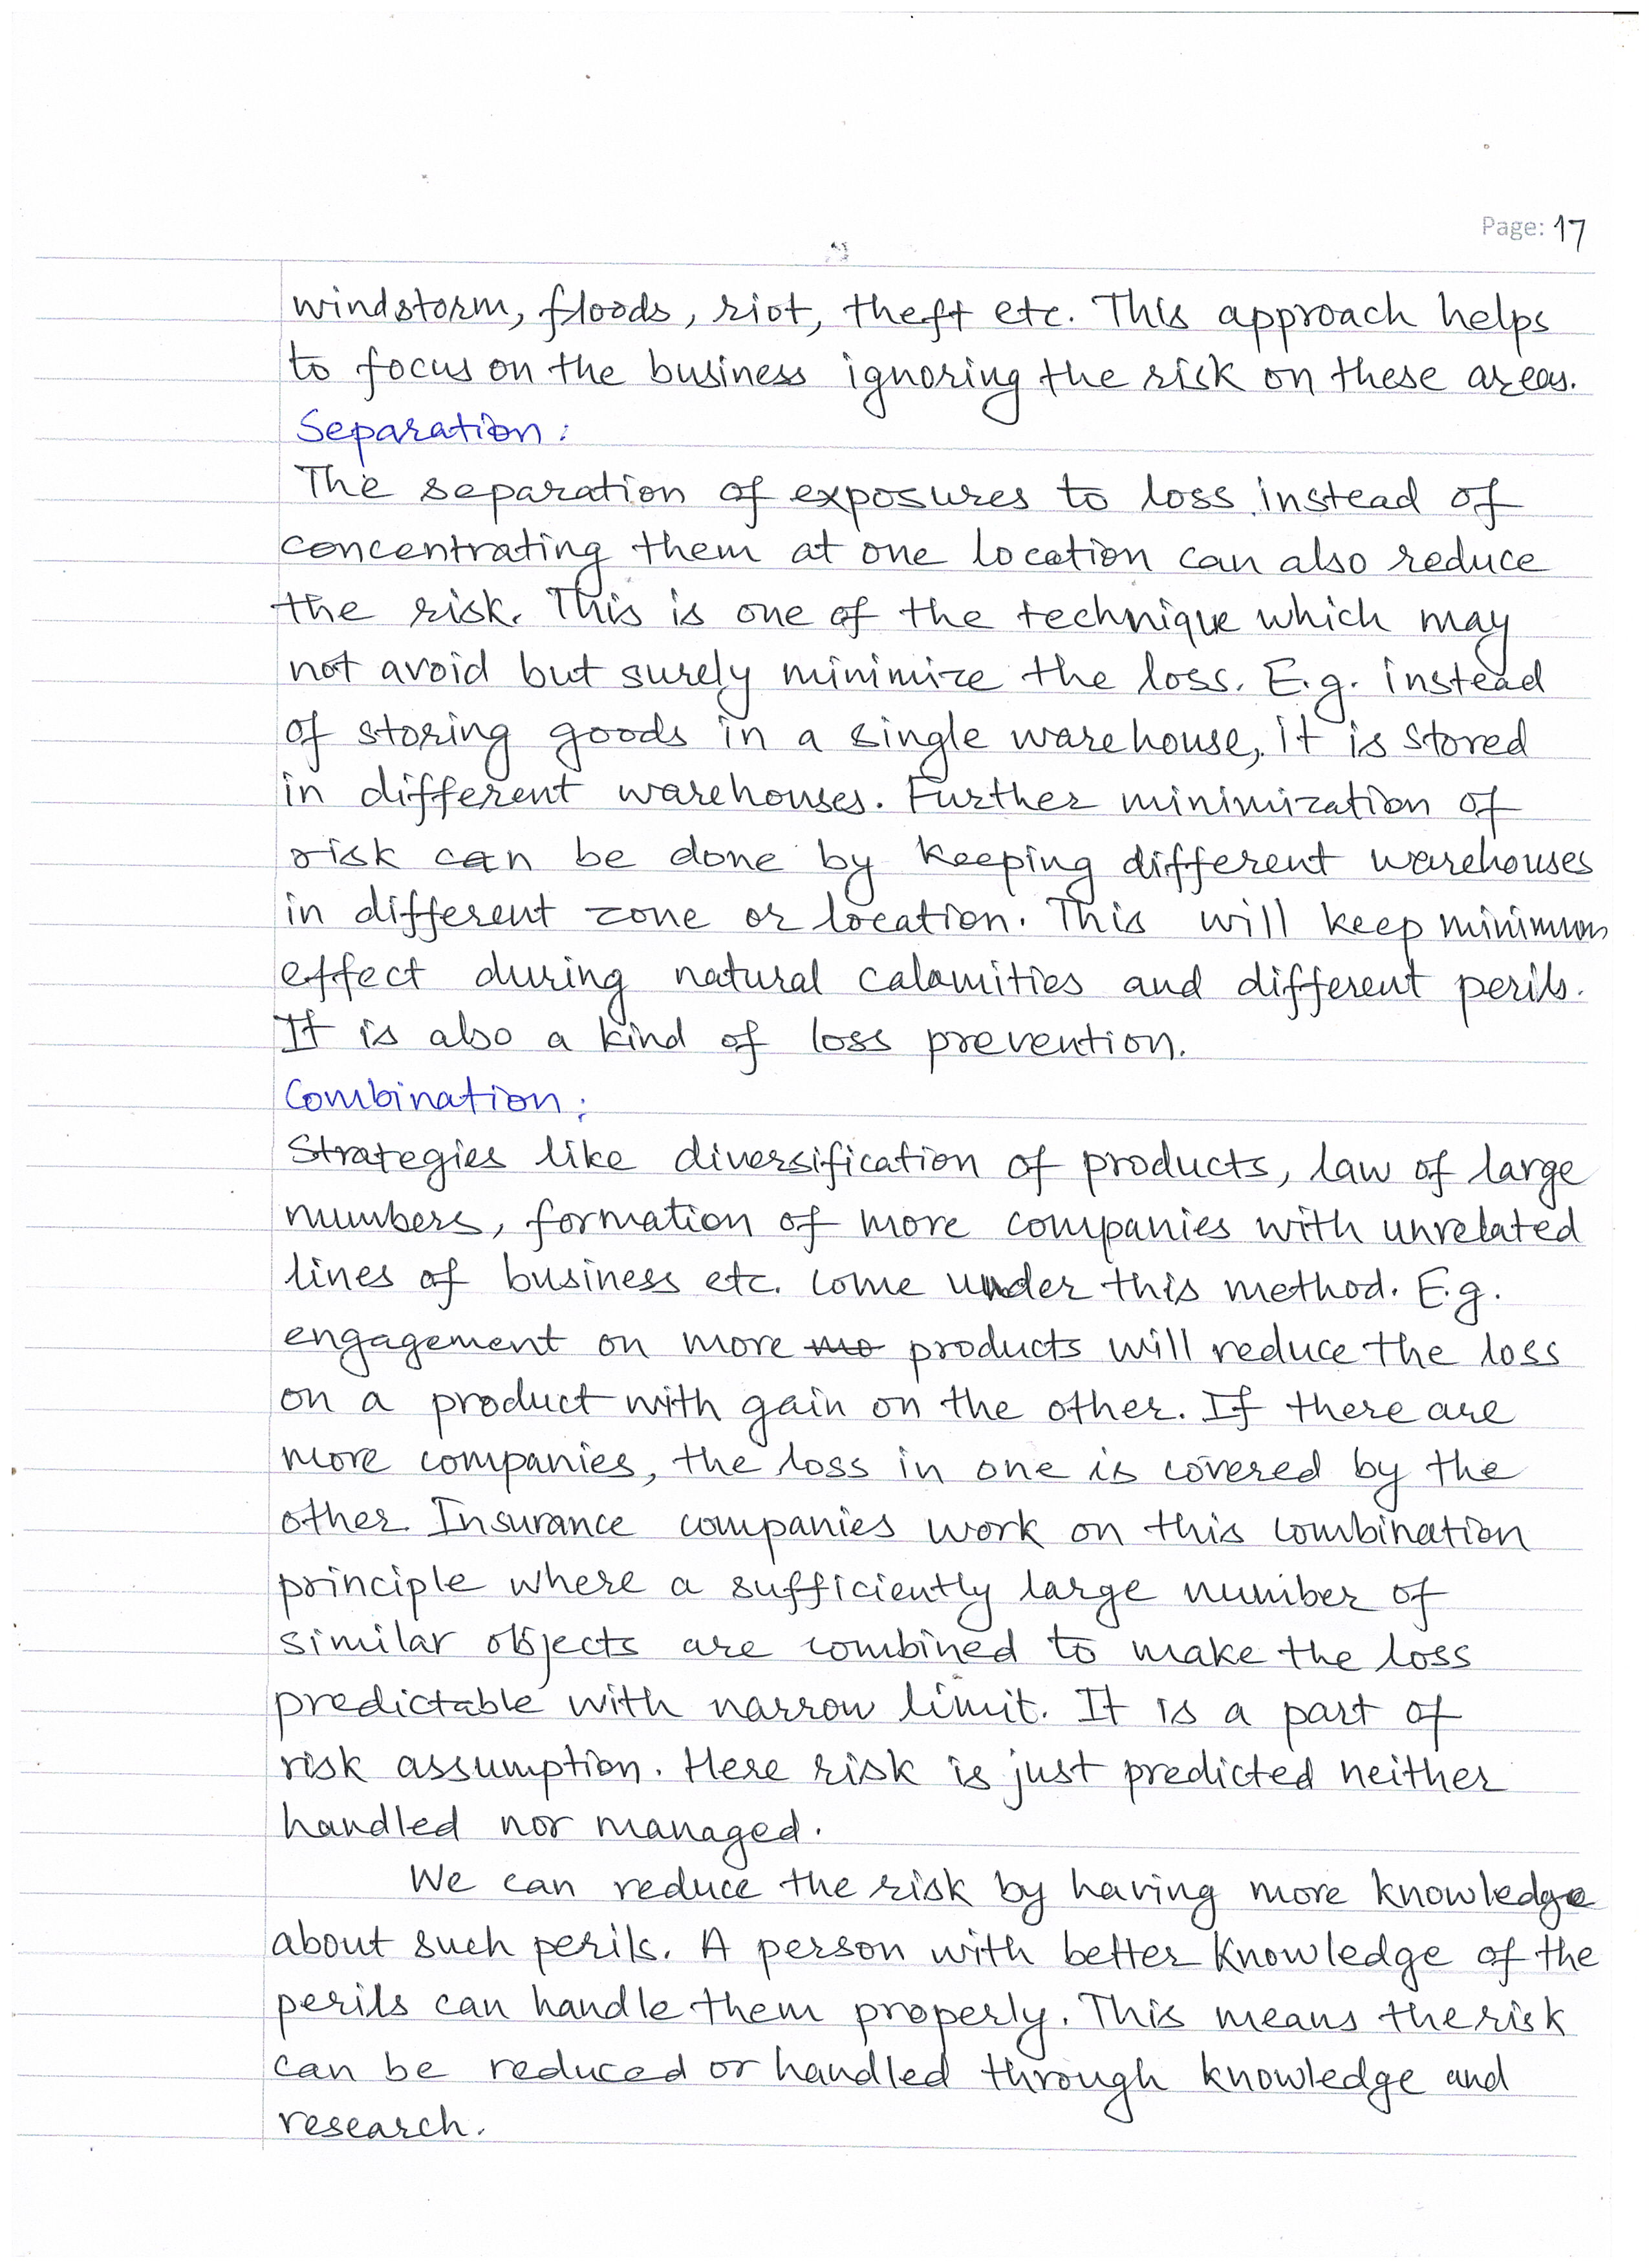 Page: 17
windstorm, floods, riot, theft etc. This approach helps
to focus on the business ignoring the risk on these areas.
Separation:
The separation of exposures to loss instead of
concentrating them at one location can also reduce
the risk. This is one of the technique which may
not avoid but surely minimize the loss. E.g. instead
of storing goods in a single warehouse, it is stored
in different warehouses. Further minimization of
risk can be done by keeping different warehouses
in different zone or location. This will keep minimum
effect during natural calamities and different perils.
It is also a kind of loss prevention.
Combination:
Strategies like diversification of products, law of large
numbers, formation of more companies with unrelated
lines of business etc. come under this method. E.g.
engagement on more mo products will reduce the loss
on a product with gain on the other. If there are
more companies, the loss in one is covered by the
other. Insurance companies work on this combination
principle where a sufficiently large number of
similar objects are combined to make the loss
predictable with narrow limit. It is a part of
risk assumption. Here risk is just predicted neither
handled nor managed.
We can reduce the risk by having more knowledge
about such perils. A person with better knowledge of the
perils can handle them properly. This means the risk
can be reduced or handled through knowledge and
research.